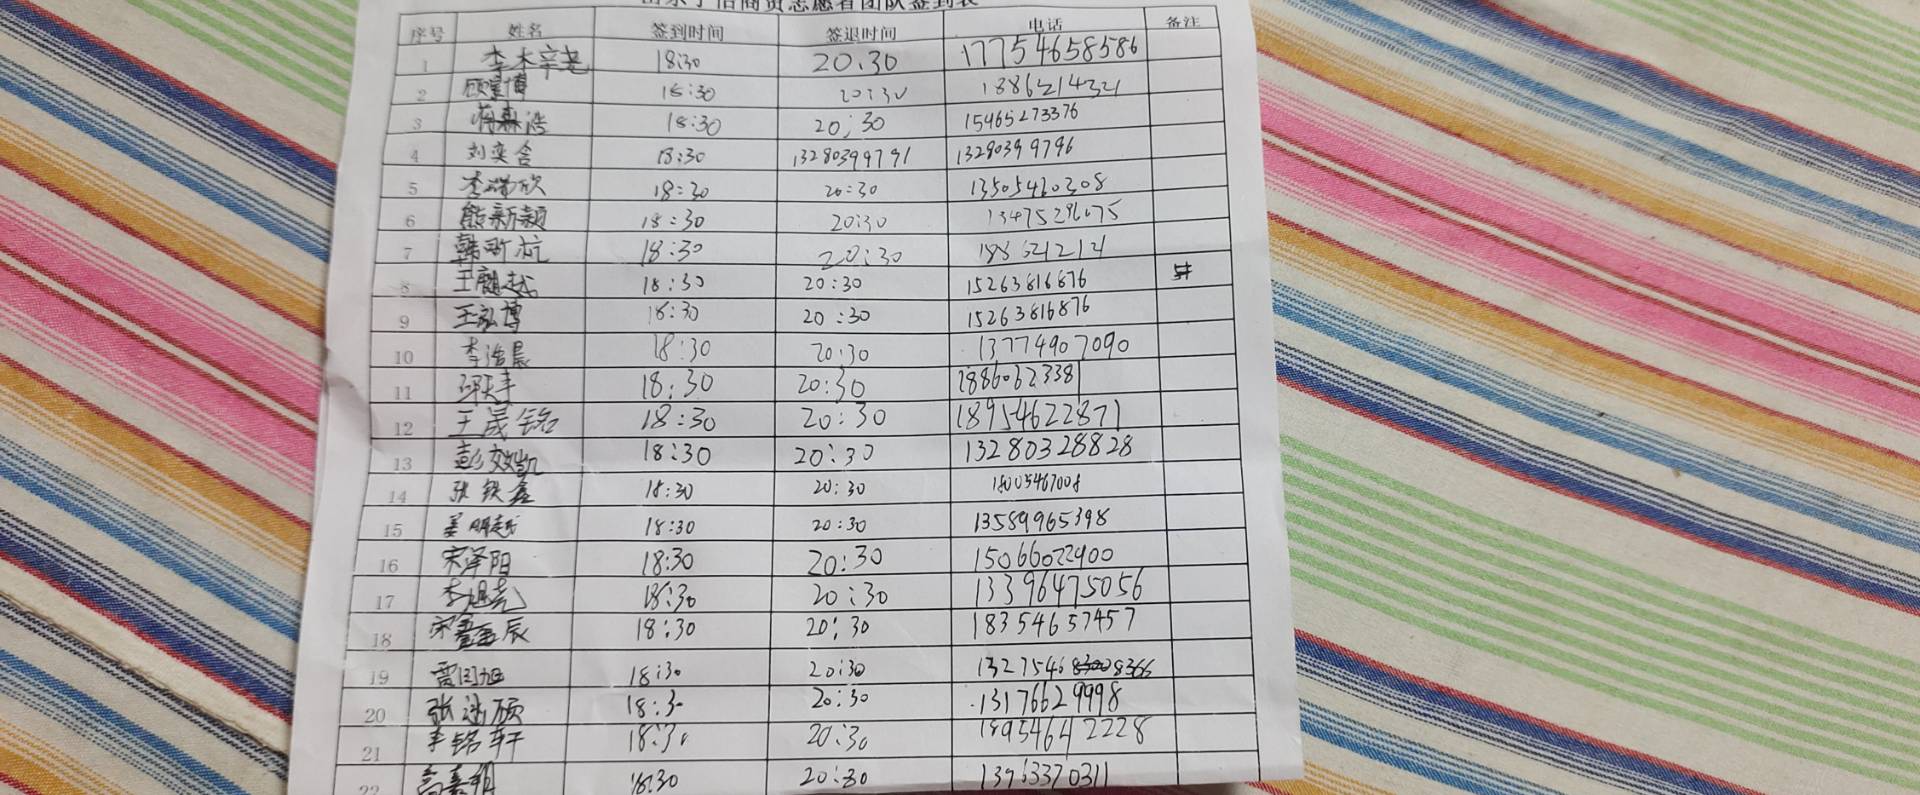 商贸志愿者团队签到表
序号 姓名 签到时间 签退时间 电话 备注
1 李木辛尧 18:30 20.30 17754658586
2 博 18:30 20:30
3 浩 18:30 20:30 15465273376
4 刘奕含 18:30 13280399791 13280399796
5 李瑞欣 18:30 20:30 13505460308
6 熊新颖 18:30 20:30
7 韩 航 18:30 20:30
8 王 越 18:30 20:30 15263816876
9 王泓博 18:30 20:30 15263816876
10 李浩晨 18:30 20:30 13774907090
11 18:30 20:30 18860623381
12 王晟铭 18:30 20:30 18954622871
13 彭效凯 18:30 20:30 13280328828
14 张铁鑫 18:30 20:30 18005467008
15 姜明越 18:30 20:30 13589965398
16 宋泽阳 18:30 20:30 15066022900
17 李旭尧 18:30 20:30 13396475056
18 宋 辰 18:30 20:30 18354657457
19 旭 18:30 20:30
20 张 硕 18:3 20:30 13176629998
21 李铭轩 18:30 20:30 18954642228
22 高 18:30 20:30 13963370311